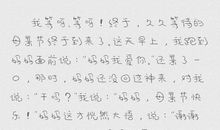 我等呀,等呀!终于,久久等待的
母亲节终于到来了,这天早上,我跑到
妈妈面前说:"妈妈我爱你,"还是了一
0,那时,妈妈还没回过神来,对我
说:"干吗?"我说:"妈妈,母亲节快
乐!"妈妈这才恍然大悟,说:"谢谢